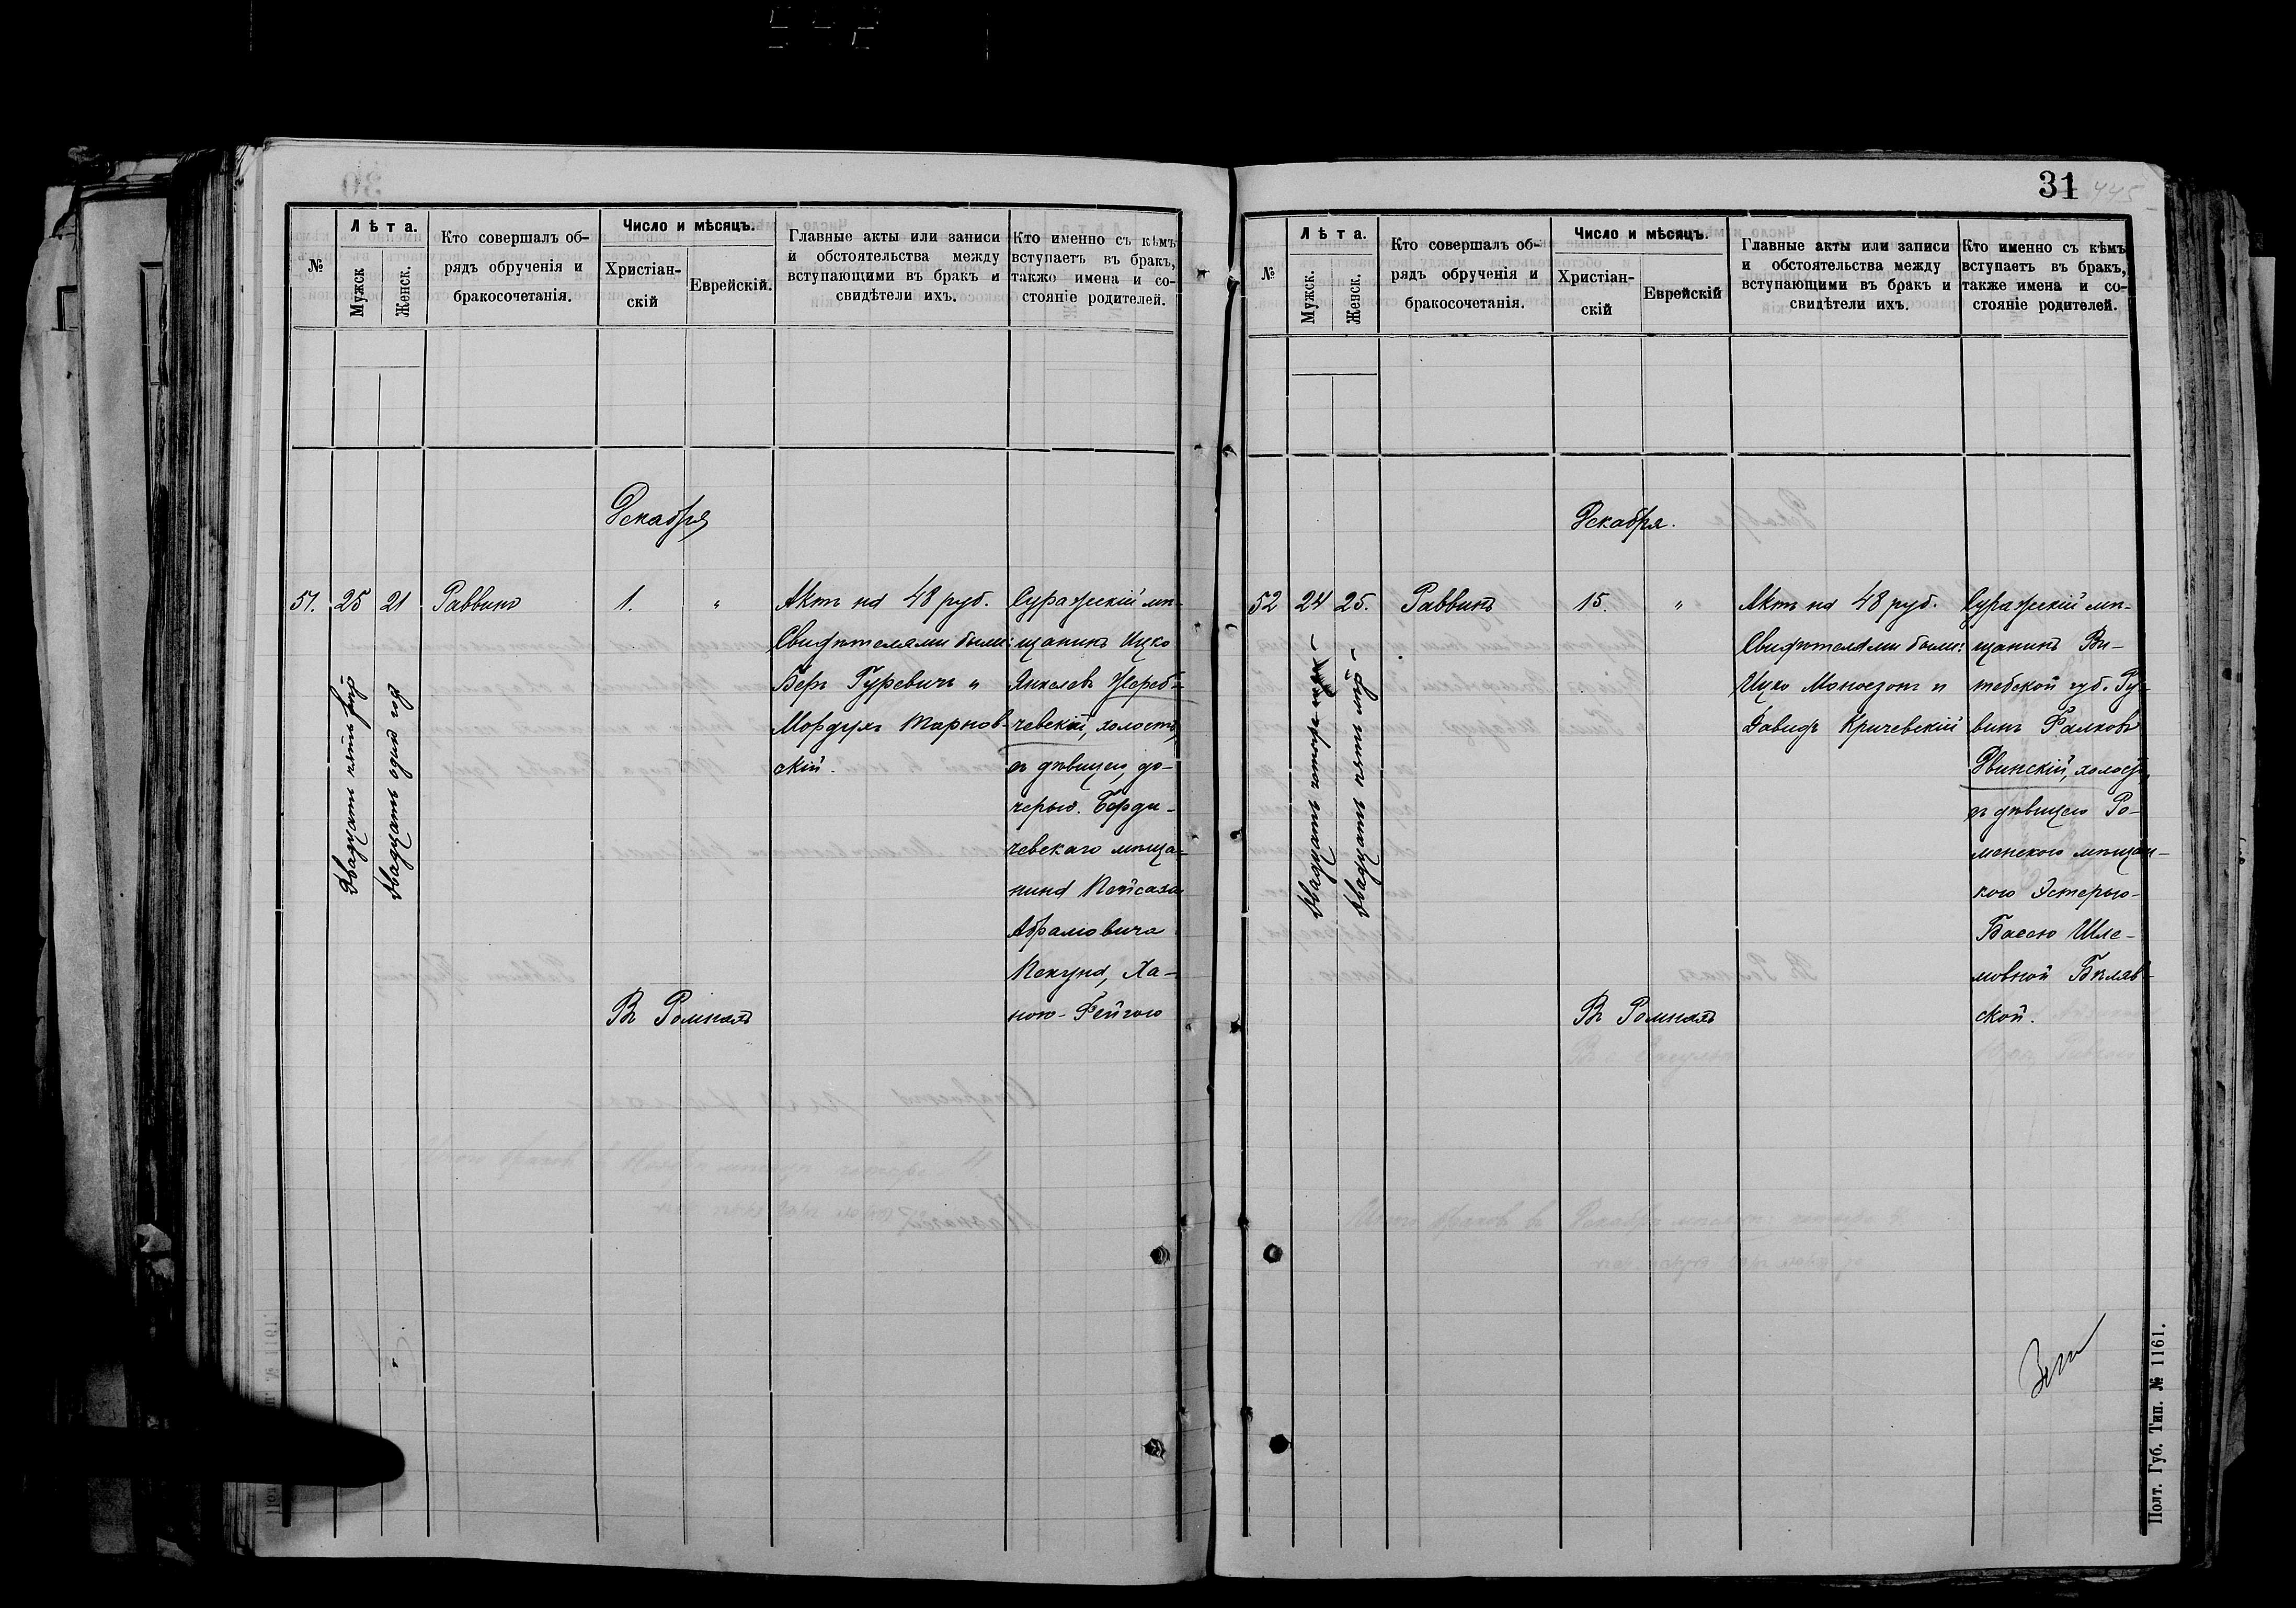 №
Лѣта.
Мужск
Женск.
Кто совершалъ об-
рядъ обрученія и
бракосочетанія.
Число и мѣсяцъ.
Христіан-
скій
Еврейскій.
Главные акты или записи
и обстоятельства между
вступающими въ бракъ и
свидѣтели ихъ.
Кто именно съ кѣмъ
вступаетъ въ бракъ,
также имена и со-
стояніе родителей.
Декабря
51.
25
21
Двадцать пять
Двадцать одинъ годъ
Раввинъ
1.
"
Въ Ромнахъ
Актъ на 48 руб.
Свидѣтелями были:
Беръ Гуревичъ и
Мордухъ Тарнов-
скій.
Суражскій мѣ-
щанинъ Ицко
Янкелевъ Жереб-
чевскій, холостъ,
съ дѣвицею, до-
черью Берди-
чевскаго мѣща-
нина Пейсаха
Абрамовича
Пекуна, Ха-
ною-Фейгою
31
445
№
Лѣта.
Мужск.
Женск.
Кто совершалъ об-
рядъ обрученія и
бракосочетанія.
Число и мѣсяцъ.
Христіан-
скій
Еврейскій
Главные акты или записи
и обстоятельства между
вступающими въ бракъ и
свидѣтели ихъ.
Кто именно съ кѣмъ
вступаетъ въ бракъ,
также имена и со-
стояніе родителей.
Декабря.
52
24
25.
Двадцать четыре
Двадцать пять
Раввинъ
15.
"
Въ Ромнахъ
Актъ на 48 руб.
Свидѣтелями были:
Ицко Моносзонъ и
Давидъ Кричевскій
Суражскій мѣ-
щанинъ Ви-
тебской губ. Ру-
винъ Фалковъ
Двинскій, холостъ,
съ дѣвицею Ро-
менскою мѣщан-
кою Эстерью-
Басею Шле-
мовной Бѣляв-
ской.
Полт. Губ. Тип. № 1161.